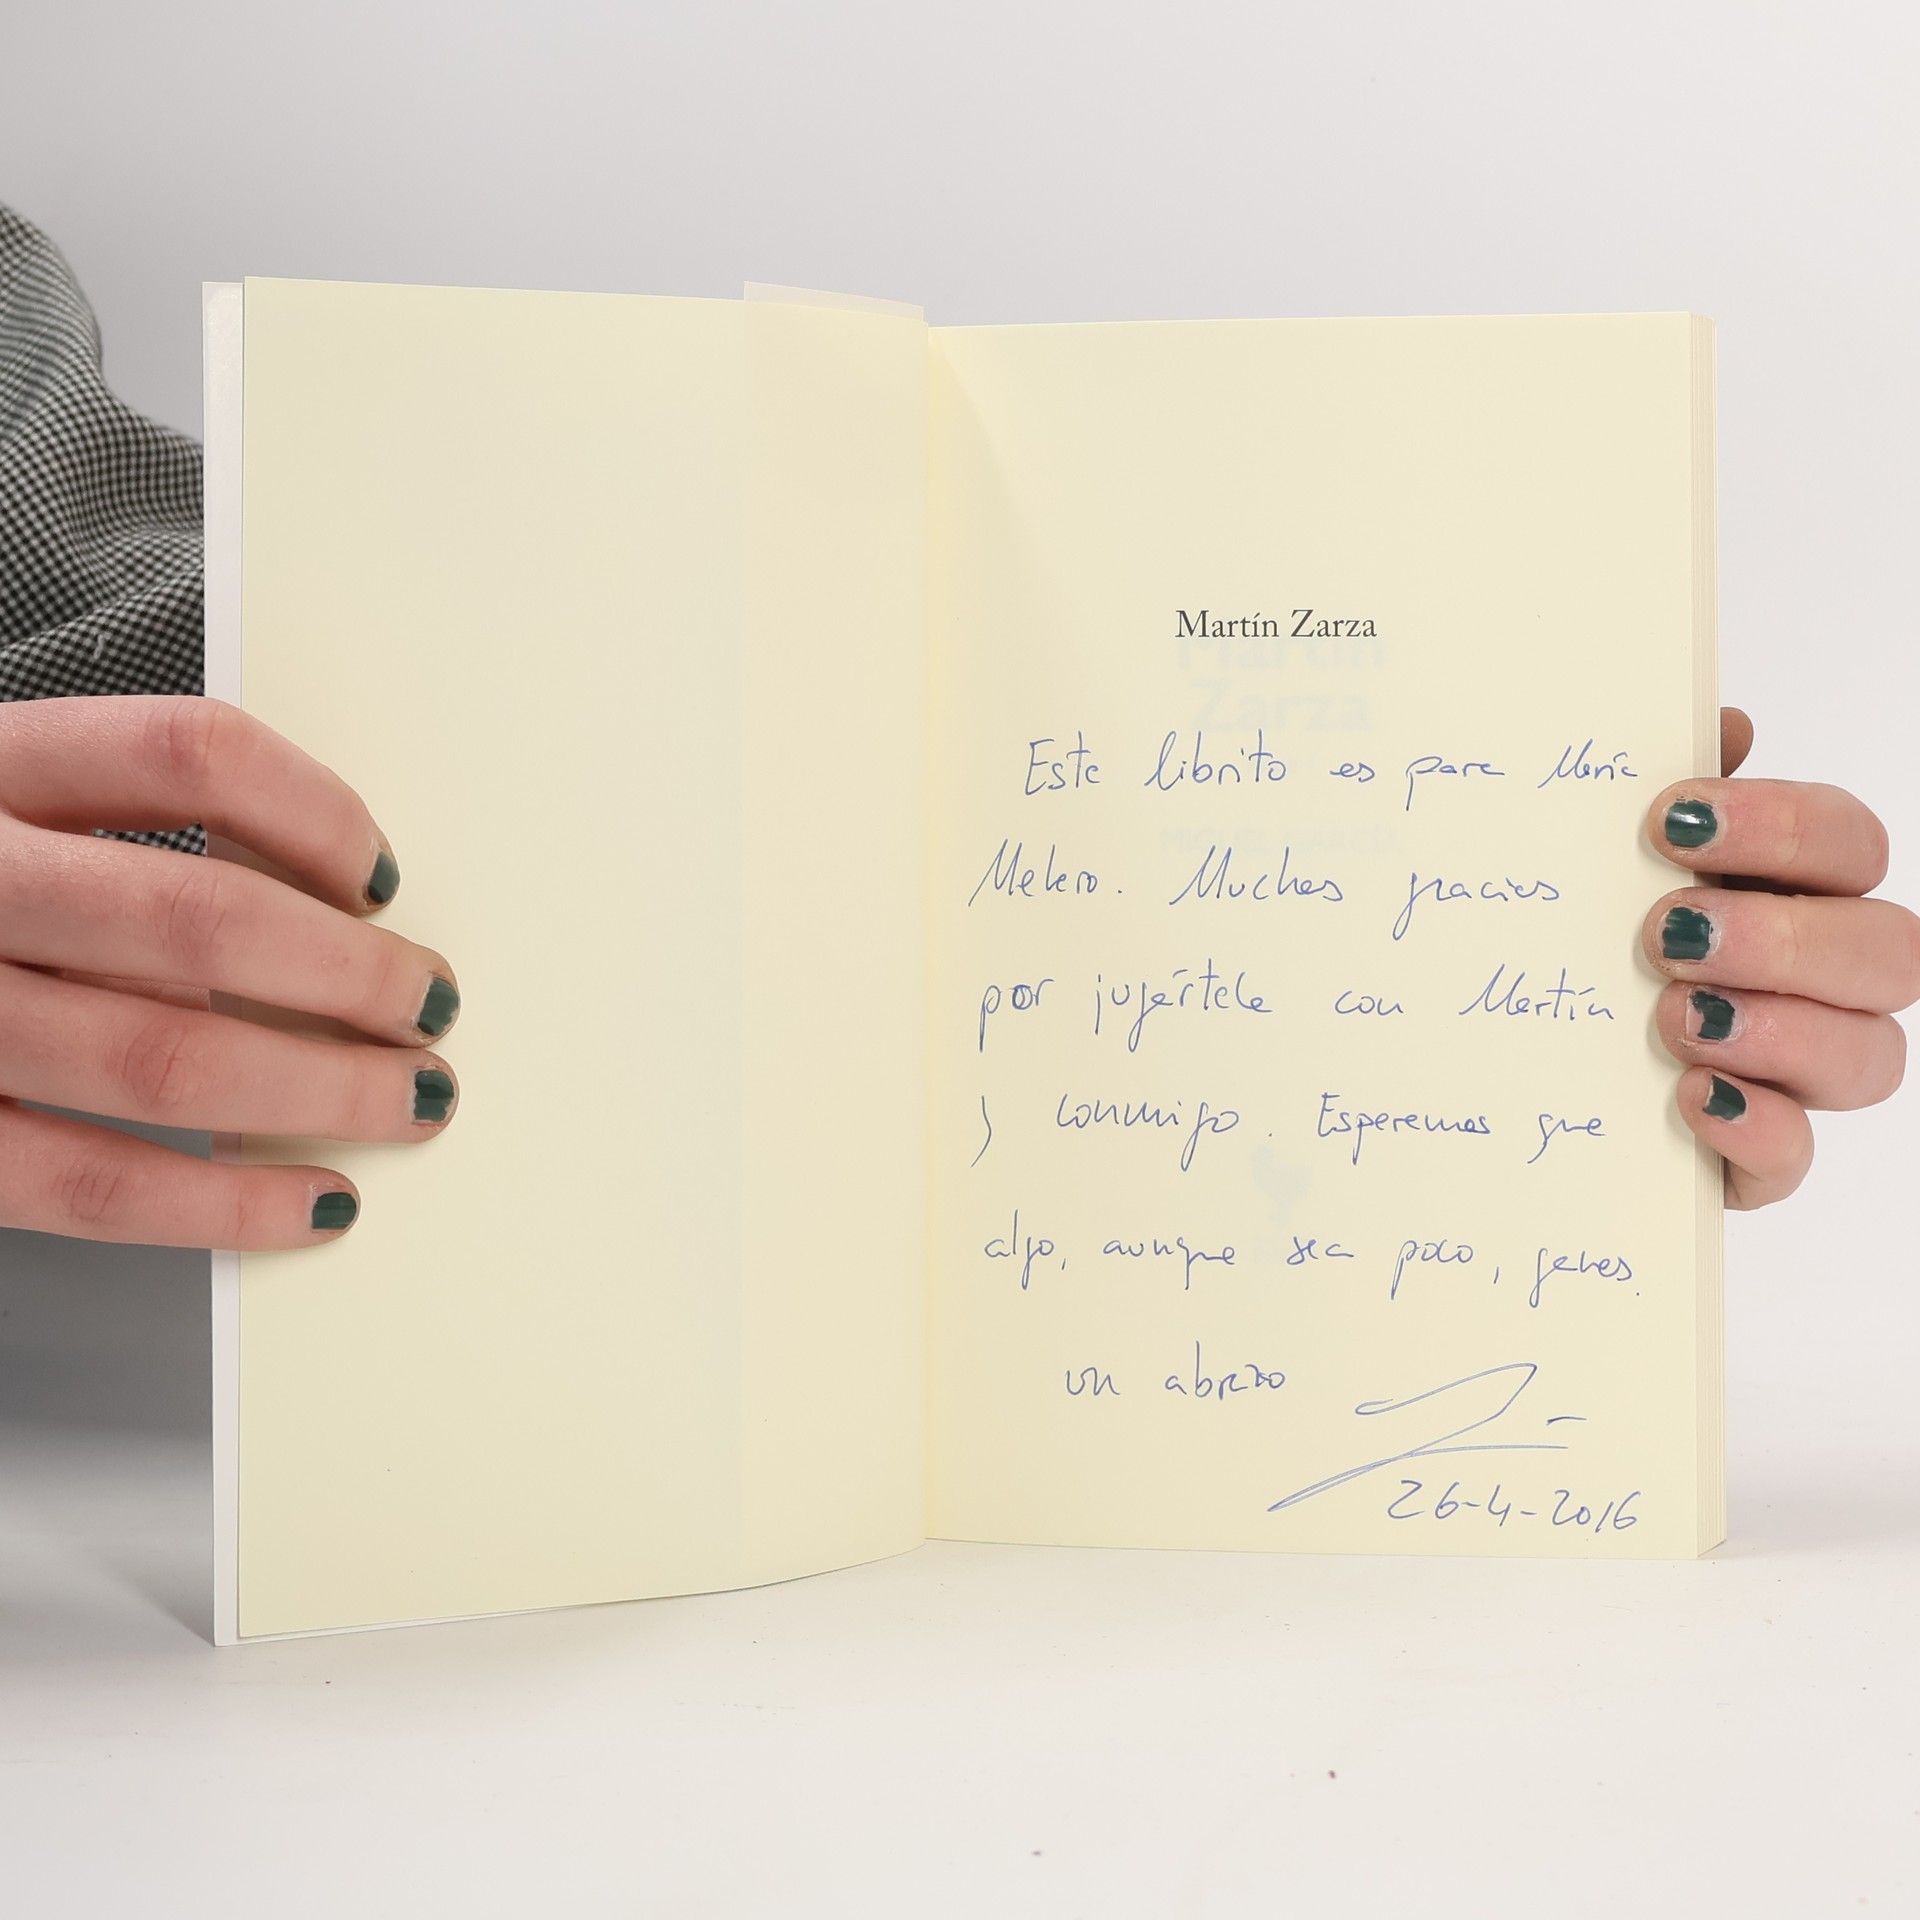 Martín Zarza
Este librito es para María
Melero. Muchas gracias
por jugártela con Martín
y conmigo. Esperemos que
algo, aunque sea poco, ganes.
un abrazo
26-4-2016